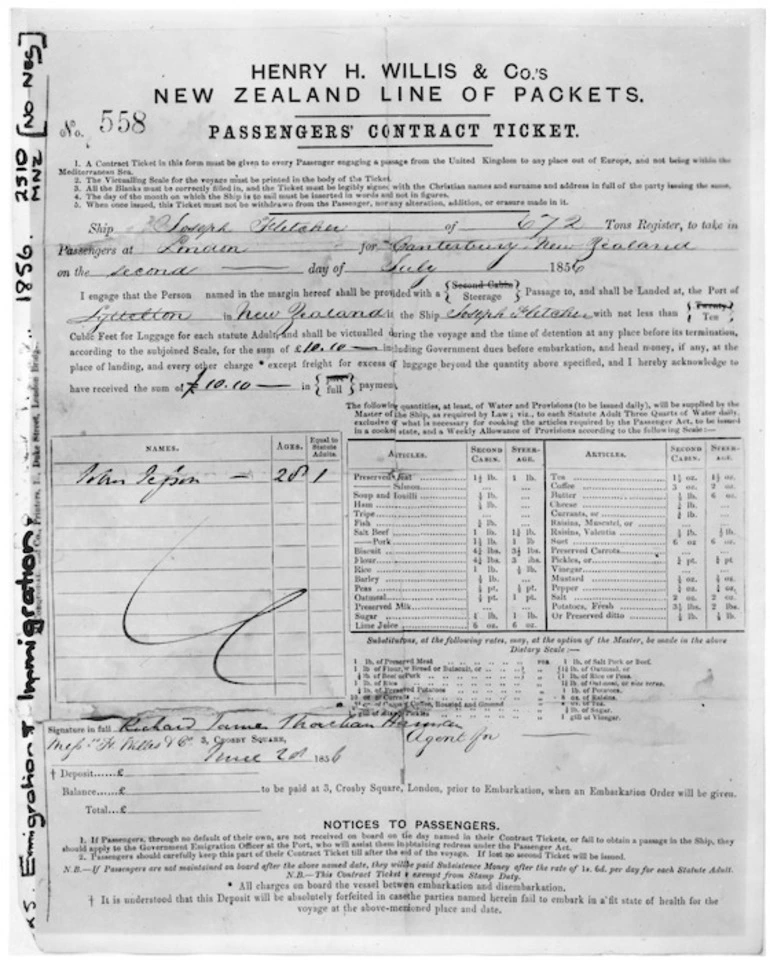 HENRY H. WILLIS & Co.'s
NEW ZEALAND LINE OF PACKETS.
No. 558
PASSENGERS' CONTRACT TICKET.
1. A Contract Ticket in this form must be given to every Passenger engaging a passage from the United Kingdom to any place out of Europe, and not being within the
Mediterranean Sea.
2. The Victualling Scale for the voyage must be printed in the body of the Ticket.
3. All the Blanks must be correctly filled in, and the Ticket must be legibly signed with the Christian names and surname and address in full of the party issuing the same.
4. The day of the month on which the Ship is to sail must be inserted in words and not in figures.
5. When once issued, this Ticket must not be withdrawn from the Passenger, nor any alteration, addition, or erasure made in it.
Ship Joseph Fletcher of 672 Tons Register, to take in
Passengers at London for Canterbury New Zealand
on the second day of July 1856
I engage that the Person named in the margin hereof shall be provided with a { Second Cabin Steerage } Passage to, and shall be Landed at, the Port of
Lyttelton in New Zealand in the Ship Joseph Fletcher with not less than { Twenty Ten }
Cubic Feet for Luggage for each statute Adult, and shall be victualled during the voyage and the time of detention at any place before its termination,
according to the subjoined Scale, for the sum of £10.10 including Government dues before embarkation, and head money, if any, at the
place of landing, and every other charge * except freight for excess of luggage beyond the quantity above specified, and I hereby acknowledge to
have received the sum of £10.10 in { part full } payment.
The following quantities, at least, of Water and Provisions (to be issued daily), will be supplied by the
Master of the Ship, as required by Law; viz., to each Statute Adult Three Quarts of Water daily,
exclusive of what is necessary for cooking the articles required by the Passenger Act, to be issued
in a cooked state, and a Weekly Allowance of Provisions according to the following Scale:—
NAMES. AGES. Equal to Statute Adults.
John 28 1
ARTICLES. SECOND CABIN. STEERAGE. ARTICLES. SECOND CABIN. STEERAGE.
Preserved Meat 1 lb. Tea
Salmon Coffee 3 oz. 2 oz.
Soup and Bouilli Butter 6 oz.
Ham Cheese
Tripe Currants, or
Fish Raisins, Muscatel, or
Salt Beef 1 lb. Raisins, Valentia
Pork 1 lb Suet 6 oz 6 oz.
Biscuit Preserved Carrots
Flour 3 lbs. Pickles, or
Rice 1 lb. Vinegar
Barley Mustard
Peas Pepper
Oatmeal 1 pt. Salt 2 oz. 2 oz
Preserved Milk Potatoes, Fresh 2 lbs.
Sugar 1 lb. 1 lb. Or Preserved ditto
Lime Juice 6 oz. 6 oz.
Substitutions, at the following rates, may, at the option of the Master, be made in the above
Dietary Scale:—
1 lb. of Preserved Meat FOR 1 lb. of Salt Pork or Beef.
1 lb. of Rice
Signature in full Richard James
Messrs H. Willis & Co 3, CROSBY SQUARE, Agent for
June 1856
† Deposit......£
Balance......£ to be paid at 3, Crosby Square, London, prior to Embarkation, when an Embarkation Order will be given.
Total....£
NOTICES TO PASSENGERS.
1. If Passengers, through no default of their own, are not received on board on the day named in their Contract Tickets, or fail to obtain a passage in the Ship, they
should apply to the Government Emigration Officer at the Port, who will assist them in obtaining redress under the Passenger Act.
2. Passengers should carefully keep this part of their Contract Ticket till after the end of the voyage. If lost no second Ticket will be issued.
N.B.—If Passengers are not maintained on board after the above named date, they will be paid Subsistence Money after the rate of 1s. 6d. per day for each Statute Adult.
N.B.—This Contract Ticket is exempt from Stamp Duty.
* All charges on board the vessel between embarkation and disembarkation.
† It is understood that this Deposit will be absolutely forfeited in case the parties named herein fail to embark in a fit state of health for the
voyage at the above-mentioned place and date.
Emigration & Immigration. 1856. 2510 [NO NEG]
MNZ
Printers, Duke Street, London